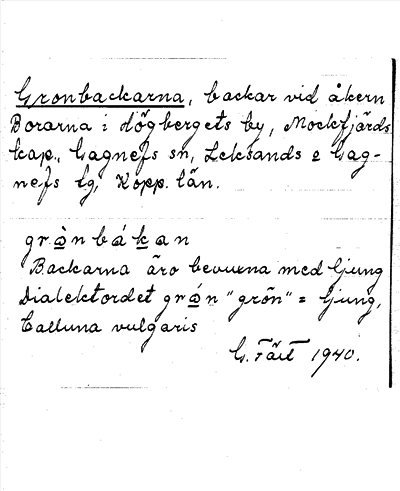 Gronbackarna, backar vid åkern
Borarna i Högbergets by, Mockfjärds
kap., Gagnefs sn, Leksands o Gag-
nefs lg, Kopp. län.
gròn bákan
Backarna äro bevuxna med ljung
Dialektordet grón "grön" = ljung,
Calluna vulgaris
G. 1940.